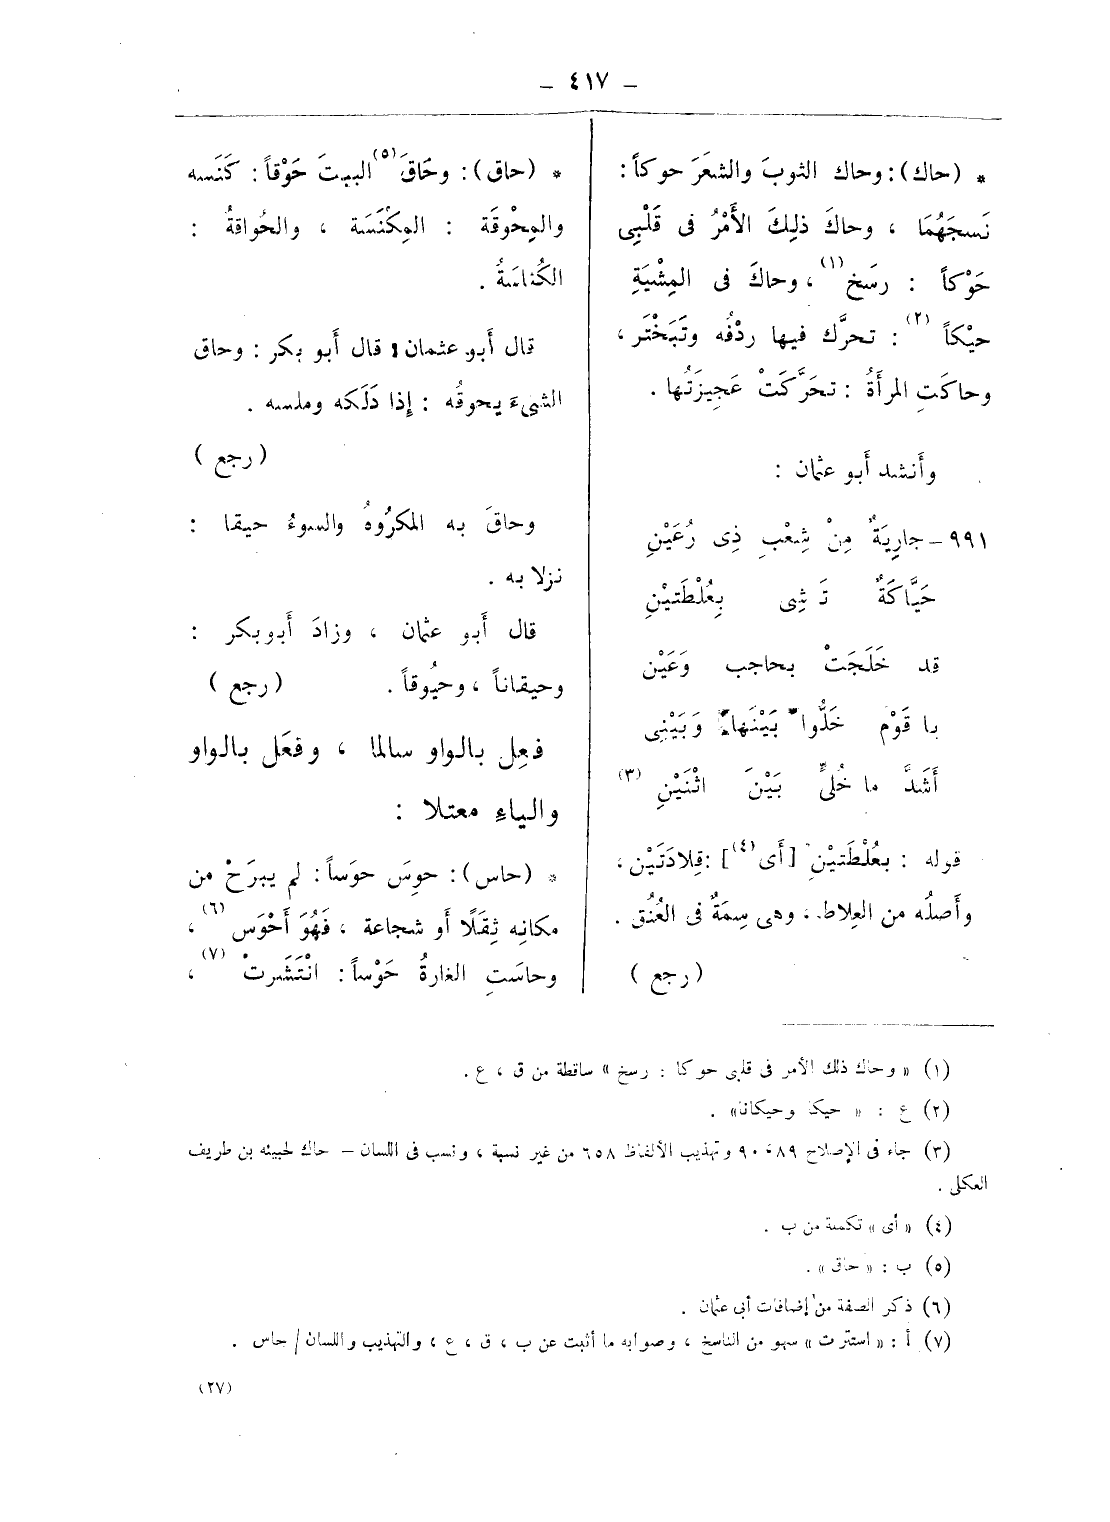 – ٤١٧ –
* (حاك): وحاك الثوبَ والشعَرَ حوكاً :
نَسجَهُمَا ، وحاكَ ذلِكَ الأَمْرُ فى قَلْبِى
حَوْكاً : رسَخ (١) ، وحاكَ فى المِشْيَةِ
حيْكاً (٢) : تحرَّك فيها ردْفُه وتَبَخْتَر ،
وحاكَتِ المرأَةُ : تحَرَّكَتْ عَجِيزَتُها .
وأَنشد أَبو عثمان :
٩٩١ – جارِيَةٌ مِنْ شِعْبِ ذِى رُعَيْنِ
حَيَّاكَةٌ تَمْشِى بِعُلْطَتيْنِ
قد خَلَجَتْ بحاجب وَعَيْن
يا قَوْم خَلُّوا بَيْنَها وَبَيْنِى
أَشَدَّ ما خُلِّىَ بَيْنَ اثْنَيْنِ (٣)
قوله : بعُلْطَتيْنِ [أَى (٤)] : قِلادَتَيْن ،
وأَصلُه من العِلاط ، وهى سِمَةٌ فى العُنُق .
( رجع )
* (حاق): وحَاقَ (٥) البيتَ حَوْقاً : كَنَسه
والمِحْوقَة : المِكْنَسَة ، والحُواقةُ :
الكُناسَةُ .
قال أَبو عثمان : قال أَبو بكر : وحاق
الشىءَ يحوقُه : إِذا دَلَكه وملسه .
( رجع )
وحاقَ به المكرُوهُ والسوءُ حيقا :
نزلا به .
قال أَبو عثمان ، وزادَ أَبوبكر :
وحيقاناً ، وحيُوقاً . ( رجع )
فعِل بالواو سالما ، وفعَل بالواو
والياءِ معتلا :
* (حاس): حوِسَ حوَساً : لم يبرَحْ من
مكانِه ثِقَلًا أَو شجاعة ، فَهُوَ أَحْوَس (٦) ،
وحاسَتِ الغارةُ حَوْساً : انْتَشَرتْ (٧) ،
(١) « وحاك ذلك الأمر فى قلبى حوكا : رسخ » ساقطة من ق ، ع .
(٢) ع : « حيكا وحيكانا» .
(٣) جاء فى الإصلاح ٨٩ ، ٩٠ وتهذيب الألفاظ ٦٥٨ من غير نسبة ، ونسب فى اللسان – حاك لحبينه بن طريف
العكلى .
(٤) « أى » تكملة من ب .
(٥) ب : « حاق » .
(٦) ذكر الصفة من إضافات أبى عثمان .
(٧) أ : « استترت » سهو من الناسخ ، وصوابه ما أثبت عن ب ، ق ، ع ، والتهذيب واللسان / حاس .
(٢٧)